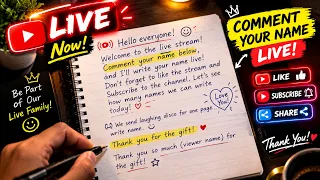 LIVE
Now!
Be Part
of Our
Live Family!
Hello everyone!
Welcome to the live stream!
Comment your name below,
and I'll write your name live!
Don't forget to like the stream and
Subscribe to the channel. Let's see
how many names we can write
today!
Love You!
We send laughing disco for one page
write name.
Thank you for the gift!
Thank you so much (viewer name) for
the gift!
COMMENT
YOUR NAME
LIVE!
LIKE
SUBSCRIBE
SHARE
Thank You!